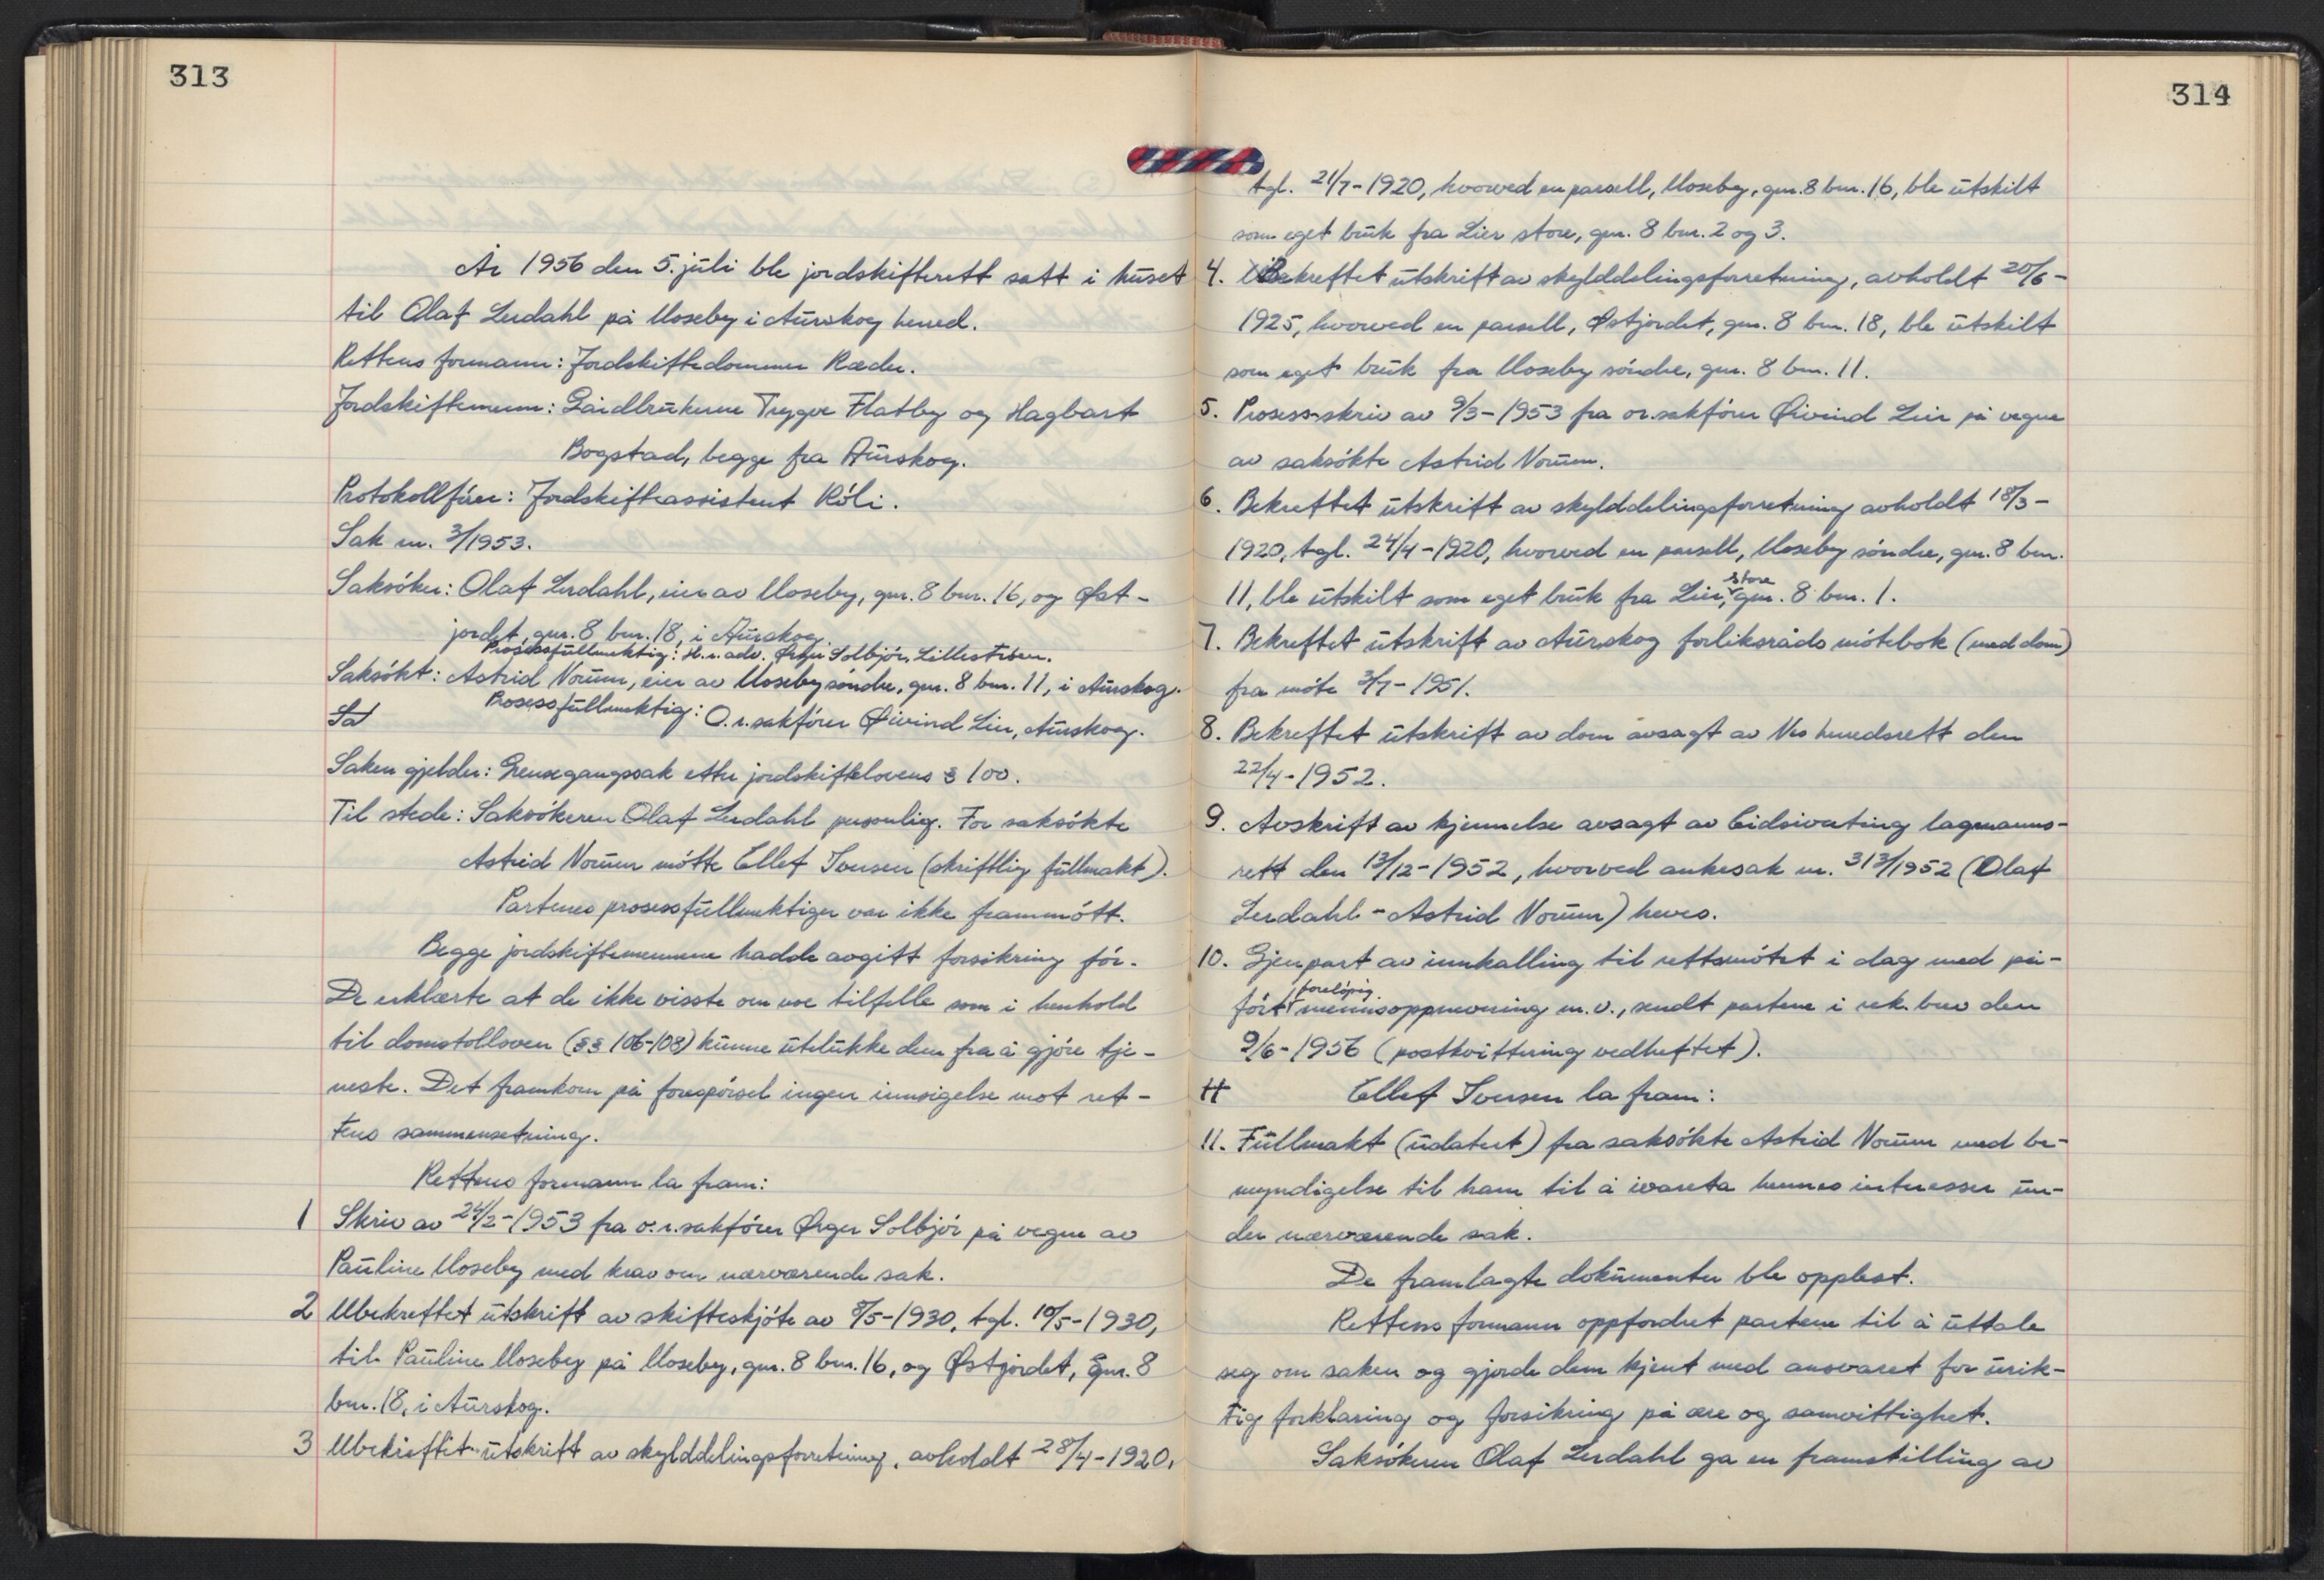 313
År 1956 den 5. juli ble jordskifterett satt i huset
til Olaf Lerdahl på Moseby i Aurskog herred.
Rettens formann: Jordskiftedommer Ræder.
Jordskiftemenn: Gardbrukerne Trygve Flatby og Hagbart
Bogstad, begge fra Aurskog.
Protokollfører: Jordskifteassistent Róli.
Sak nr. 3/1953.
Saksøker: Olaf Lerdahl, eier av Moseby, gnr. 8 bnr. 16, og Øst-
jordet, gnr. 8 bnr. 18, i Aurskog.
Prosessfullmektig: H.r. adv. Ørger Solbjør, Lillestrøm.
Saksøkt: Astrid Norum, eier av Moseby søndre, gnr. 8 bnr. 11, i Aurskog.
Prosessfullmektig: O.r.sakfører Øivind Lier, Aurskog.
Sa
Saken gjelder: Grensegangssak etter jordskiftelovens § 100.
Til stede: Saksøkeren Olaf Lerdahl personlig. For saksøkte
Astrid Norum møtte Ellef Iversen (skriftlig fullmakt).
Partenes prosessfullmektiger var ikke frammøtt.
Begge jordskiftemennene hadde avgitt forsikring før.
De erklærte at de ikke visste om noe tilfelle som i henhold
til domstolloven (§§ 106-108) kunne utelukke dem fra å gjøre tje-
neste. Det framkom på forespørsel ingen innsigelse mot ret-
tens sammensetning.
Rettens formann la fram:
1 Skriv av 24/2-1953 fra o.r.sakfører Ørger Solbjør på vegne av
Pauline Moseby med krav om nærværende sak.
2 Ubekreftet utskrift av skifteskjøte av 8/5-1930, tgl. 10/5-1930,
til Pauline Moseby på Moseby, gnr. 8 bnr. 16, og Østjordet, gnr. 8
bnr. 18, i Aurskog.
3 Ubekreftet utskrift av skylddelingsforretning, avholdt 28/4-1920,
314
tgl. 21/7-1920, hvorved en parsell, Moseby, gnr. 8 bnr. 16, ble utskilt
som eget bruk fra Lier store, gnr. 8 bnr. 2 og 3.
4. Bekreftet utskrift av skylddelingsforretning, avholdt 20/6-
1925, hvorved en parsell, Østjordet, gnr. 8 bnr. 18, ble utskilt
som eget bruk fra Moseby søndre, gnr. 8 bnr. 11.
5. Prosess-skriv av 9/3-1953 fra o.r.sakfører Øivind Lier på vegne
av saksøkte Astrid Norum.
6. Bekreftet utskrift av skylddelingsforretning avholdt 18/3-
1920, tgl. 24/4-1920, hvorved en parsell, Moseby søndre, gnr. 8 bnr.
11, ble utskilt som eget bruk fra Lier store, gnr. 8 bnr. 1.
7. Bekreftet utskrift av Aurskog forliksråds møtebok (med dom)
fra møte 3/7-1951.
8. Bekreftet utskrift av dom avsagt av Nes herredsrett den
22/4-1952.
9. Avskrift av kjennelse avsagt av Eidsivating lagmanns-
rett den 13/12-1952, hvorved ankesak nr. 313/1952 (Olaf
Lerdahl - Astrid Norum) heves.
10. Gjenpart av innkalling til rettsmøtet i dag med på-
ført foreløpig mennsoppnevning m.v., sendt partene i rek. brev den
9/6-1956 (postkvittering vedheftet).
H Ellef Iversen la fram:
11. Fullmakt (udatert) fra saksøkte Astrid Norum med be-
myndigelse til ham til å ivareta hennes interesser un-
der nærværende sak.
De framlagte dokumenter ble opplest.
Rettens formann oppfordret partene til å uttale
seg om saken og gjorde dem kjent med ansvaret for urik-
tig forklaring og forsikring på ære og samvittighet.
Saksøkeren Olaf Lerdahl ga en framstilling av